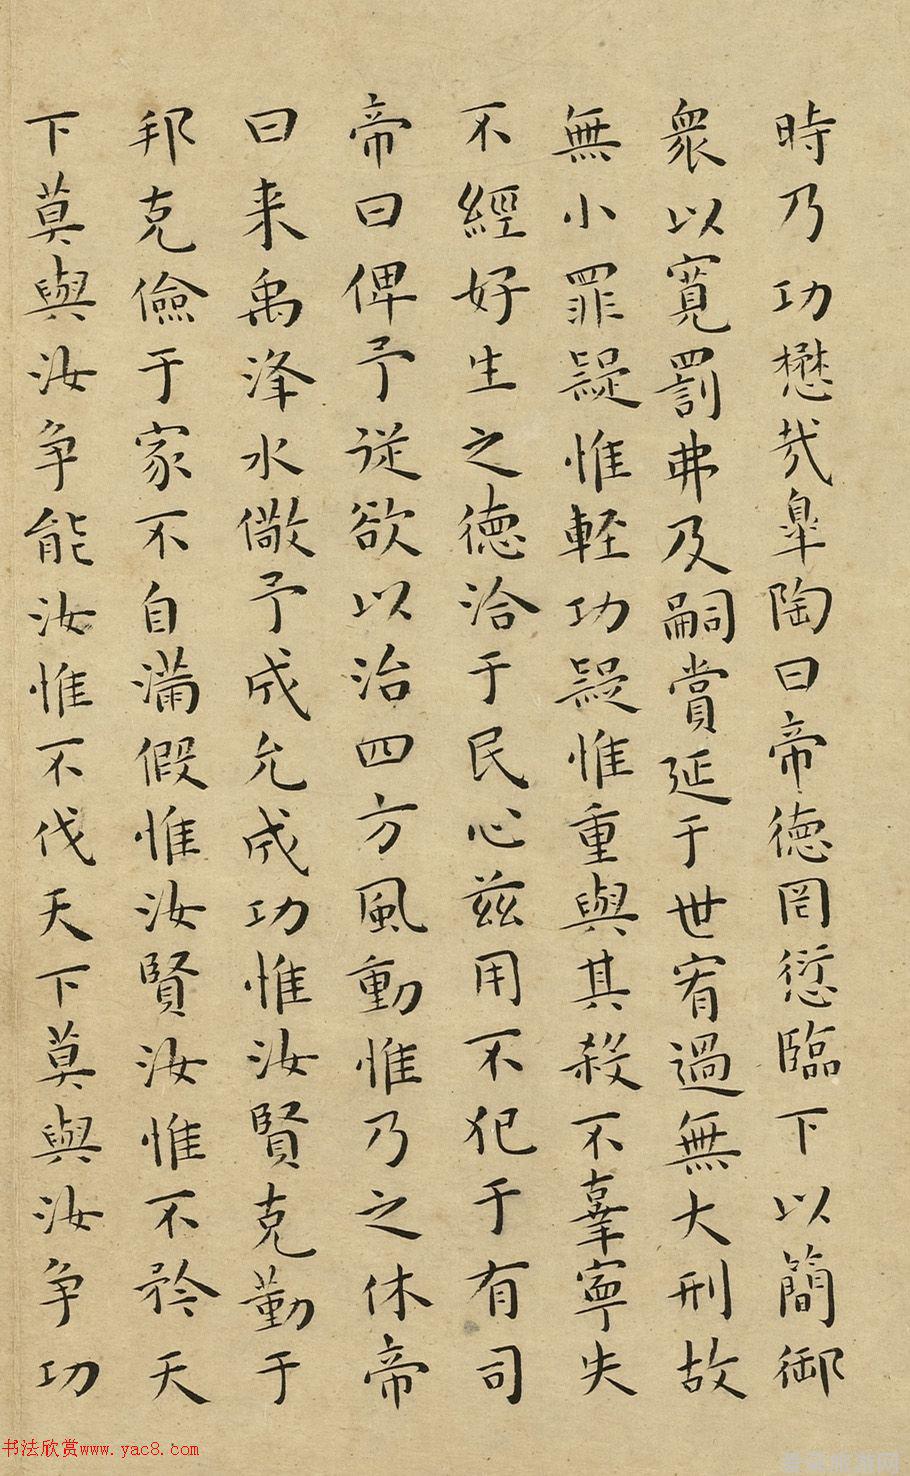 時乃功懋哉皐陶曰帝德罔愆臨下以簡御
衆以寬罰弗及嗣賞延于世宥過無大刑故
無小罪疑惟輕功疑惟重與其殺不辜寧失
不經好生之德洽于民心茲用不犯于有司
帝曰俾予從欲以治四方風動惟乃之休帝
曰来禹洚水儆予成允成功惟汝賢克勤于
邦克儉于家不自滿假惟汝賢汝惟不矜天
下莫與汝争能汝惟不伐天下莫與汝争功
书法欣赏www.yac8.com